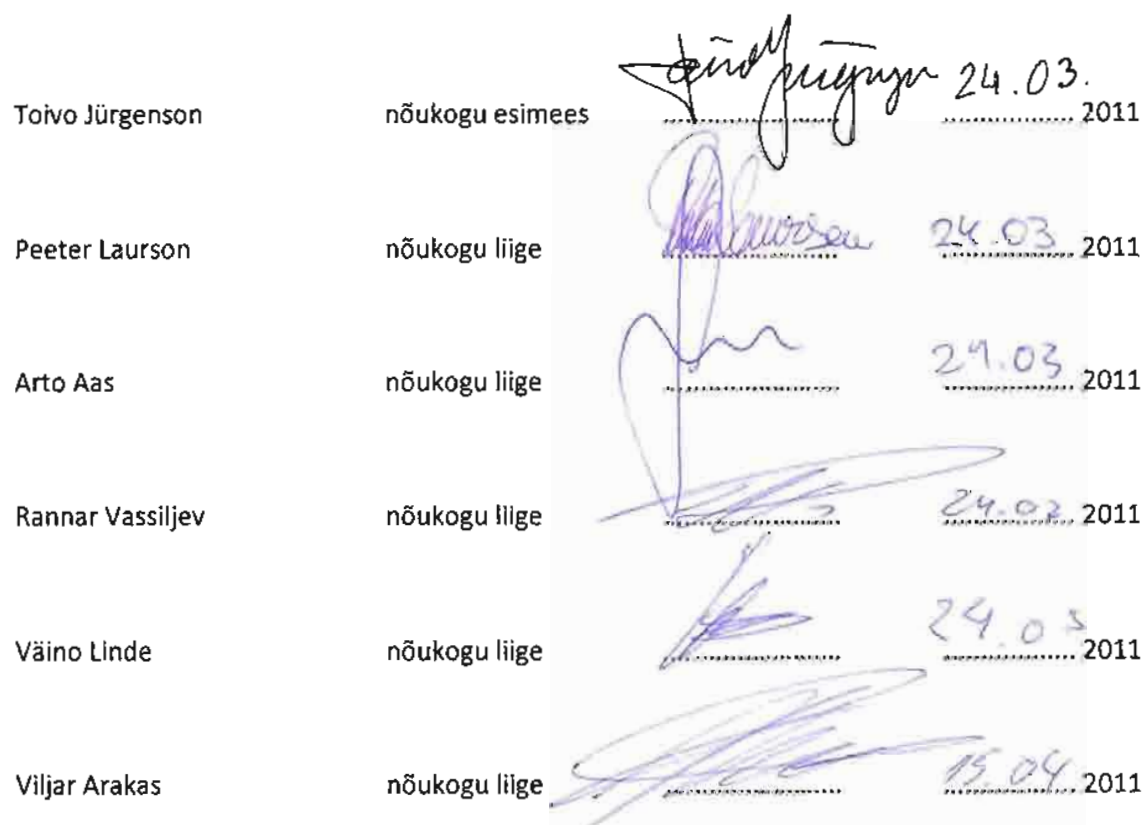 Toivo Jürgenson nõukogu esimees 24.03. 2011
Peeter Laurson nõukogu liige Laurson 24.03 2011
Arto Aas nõukogu liige 24.03 2011
Rannar Vassiljev nõukogu liige 24.03 2011
Väino Linde nõukogu liige 24.03 2011
Viljar Arakas nõukogu liige 15.04 2011